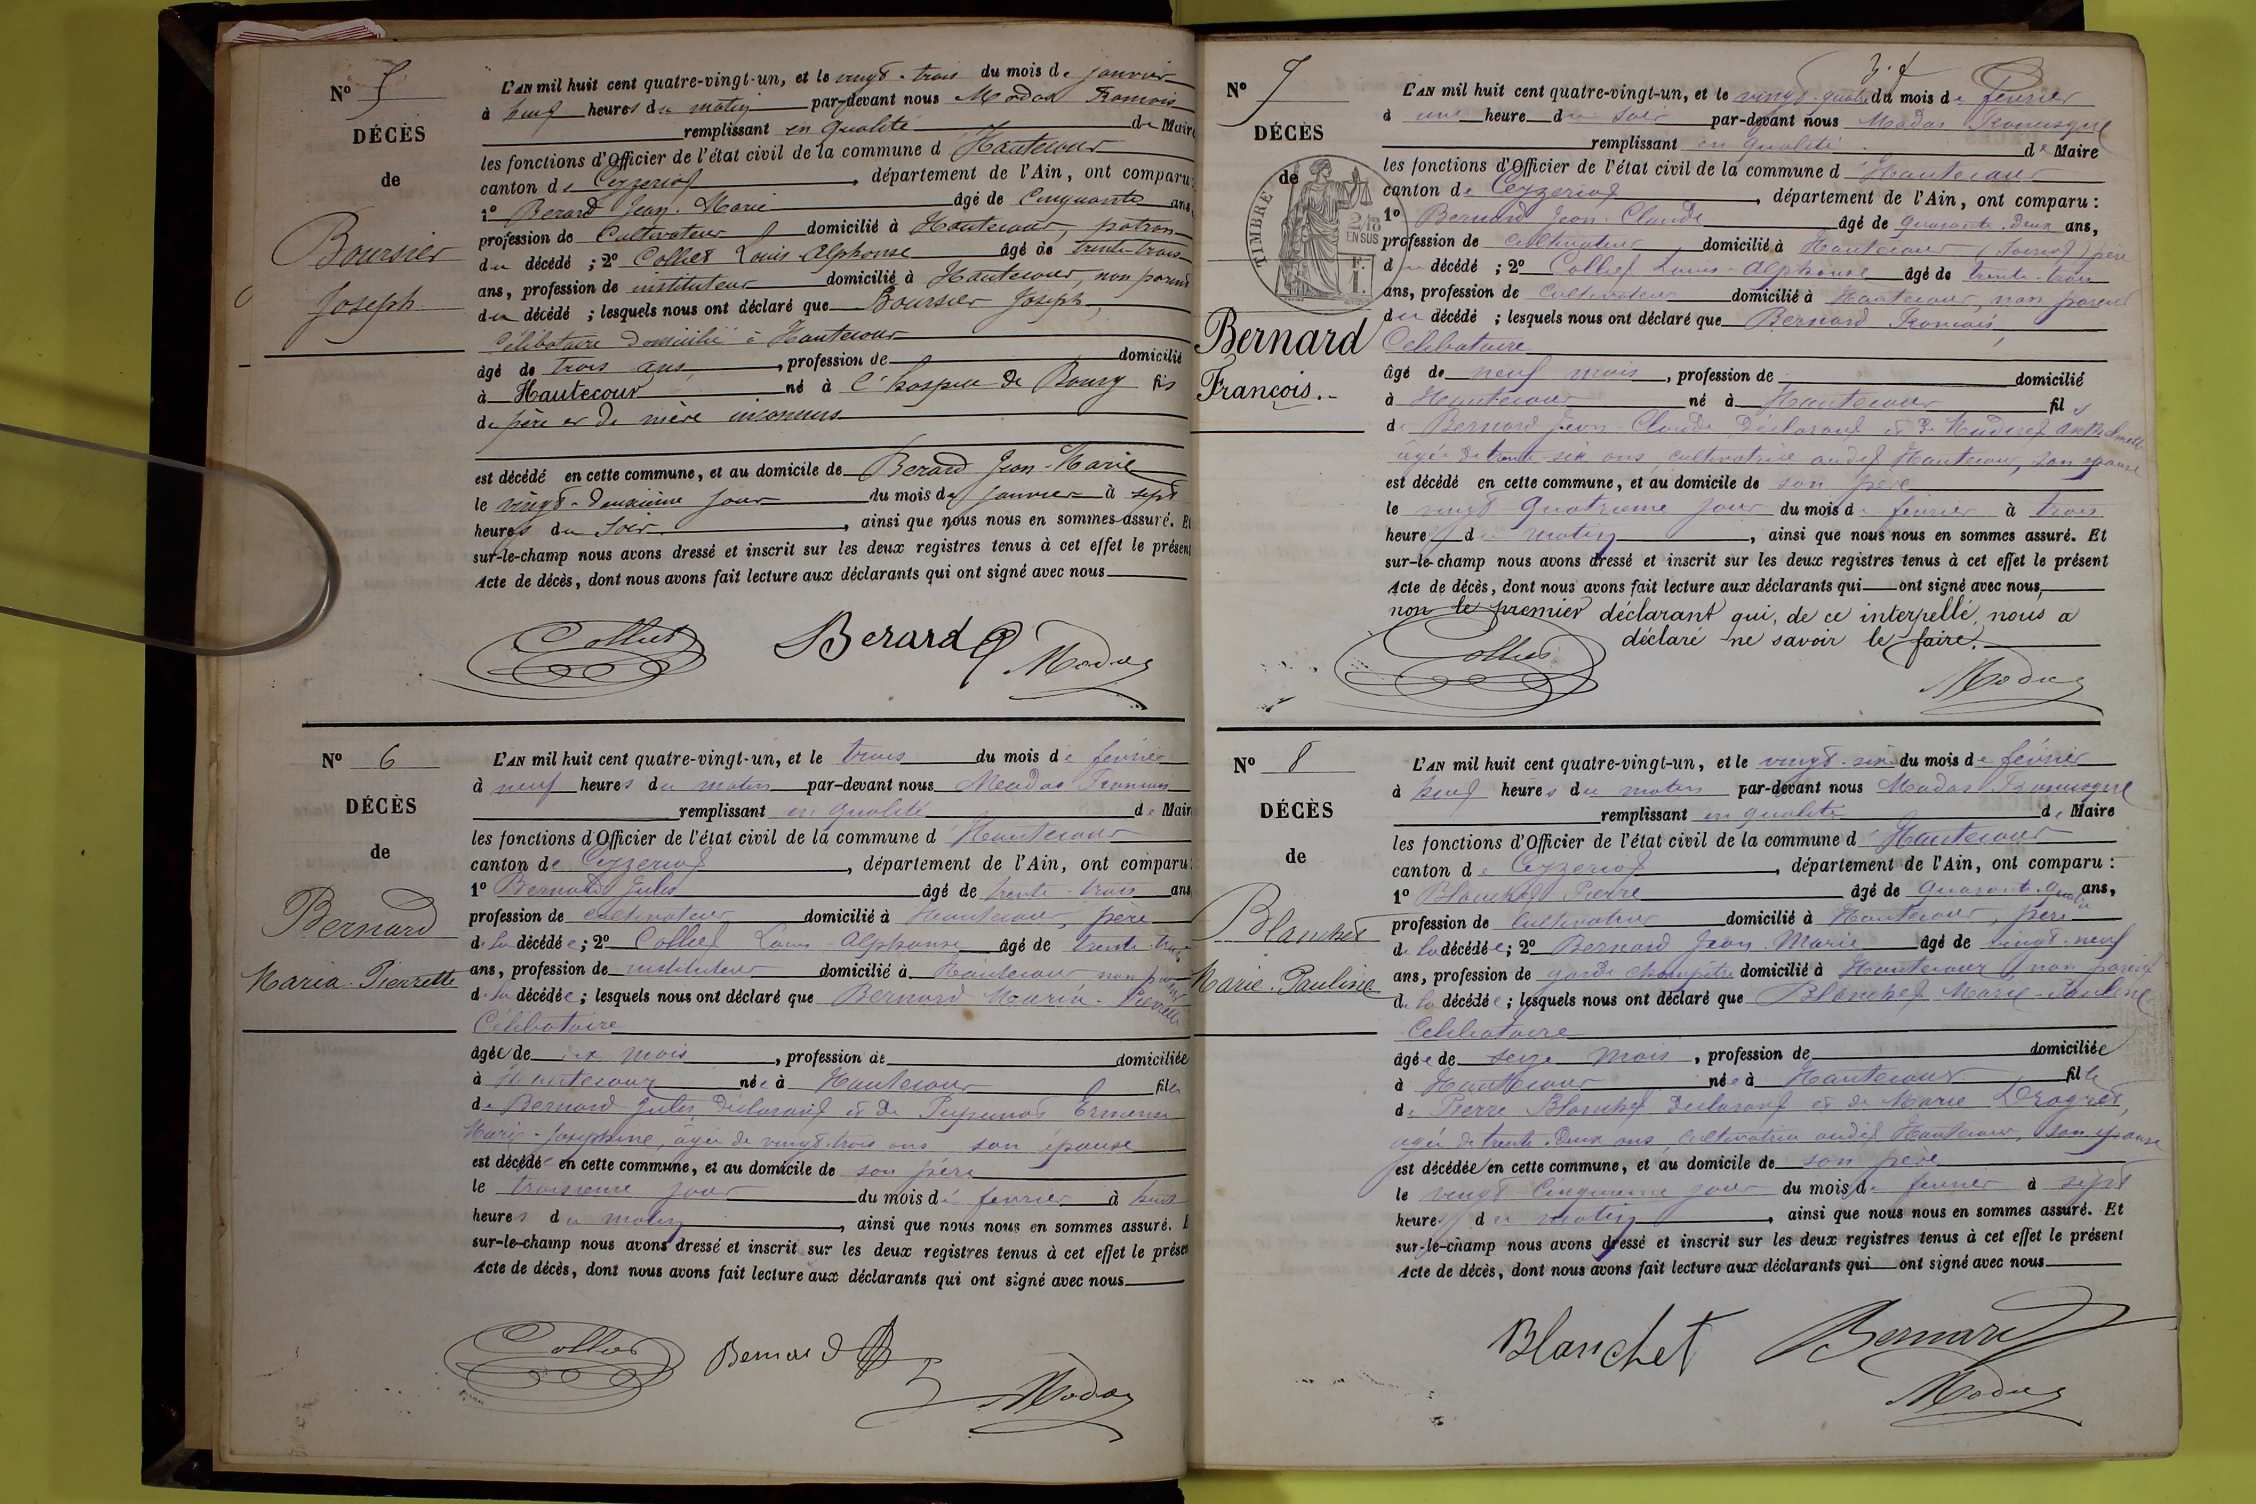 Nº 5
DÉCÈS
de
Boursier
Joseph
L'AN mil huit cent quatre-vingt-un, et le vingt-trois du mois de janvier
à neuf heures du matin par-devant nous Modas François
remplissant en qualité de Maire
les fonctions d'Officier de l'état civil de la commune d'Hautecour
canton de Ceyzeriat, département de l'Ain, ont comparu:
1º Berard Jean-Marie âgé de Cinquante ans,
profession de Cultivateur domicilié à Hautecour, patron
du décédé; 2º Collet Louis Alphonse âgé de trente-trois
ans, profession de instituteur domicilié à Hautecour, non parent
du décédé; lesquels nous ont déclaré que Boursier Joseph,
Célibataire domicilié à Hautecour
âgé de trois ans, profession de domicilié
à Hautecour né à l'hospice de Bourg fils
de père et de mère inconnus
est décédé en cette commune, et au domicile de Berard Jean-Marie
le vingt-deuxième jour du mois de janvier à sept
heures du soir, ainsi que nous nous en sommes assuré. Et
sur-le-champ nous avons dressé et inscrit sur les deux registres tenus à cet effet le présent
Acte de décès, dont nous avons fait lecture aux déclarants qui ont signé avec nous
Collet Berard Modas
Nº 6
DÉCÈS
de
Bernard
Maria-Pierrette
L'AN mil huit cent quatre-vingt-un, et le trois du mois de février
à neuf heures du matin par-devant nous Modas François
remplissant en qualité de Maire
les fonctions d'Officier de l'état civil de la commune d'Hautecour
canton de Ceyzeriat, département de l'Ain, ont comparu:
1º Bernard Jules âgé de trente-trois ans
profession de cultivateur domicilié à Hautecour, père
de la décédée; 2º Collet Louis-Alphonse âgé de trente-trois
ans, profession de instituteur domicilié à Hautecour non parent
de la décédée; lesquels nous ont déclaré que Bernard Maria-Pierrette
Célibataire
âgée de mois, profession de domiciliée
à Hautecour née à Hautecour fille
de Bernard Jules, déclarant et de
Marie-Josephine, âgée de vingt-trois ans son épouse
est décédé en cette commune, et au domicile de son père
le troisième jour du mois de février à huit
heures du matin, ainsi que nous nous en sommes assuré. E
sur-le-champ nous avons dressé et inscrit sur les deux registres tenus à cet effet le présent
Acte de décès, dont nous avons fait lecture aux déclarants qui ont signé avec nous
Collet Bernard Modas
Nº 7
DÉCÈS
de
TIMBRE
2/10
EN SUS
F.
1.
Bernard
François.
L'AN mil huit cent quatre-vingt-un, et le vingt-quatre du mois de février
à une heure du soir par-devant nous Modas Francisque
remplissant en qualité de Maire
les fonctions d'Officier de l'état civil de la commune d'Hautecour
canton de Ceyzeriat, département de l'Ain, ont comparu:
1º Bernard Jean-Claude âgé de quarante-deux ans,
profession de cultivateur, domicilié à Hautecour père
du décédé; 2º Collet Louis-Alphonse âgé de trente-trois
ans, profession de Cultivateur domicilié à Hautecour, non parent
du décédé; lesquels nous ont déclaré que Bernard François,
Celibataire
âgé de neuf mois, profession de domicilié
à Hautecour né à Hautecour fils
de Bernard Jean-Claude, déclarant et de
âgée de trente-six ans, cultivatrice audit Hautecour, son épouse
est décédé en cette commune, et au domicile de son père
le vingt quatrième jour du mois de février à trois
heures du matin, ainsi que nous nous en sommes assuré. Et
sur-le-champ nous avons dressé et inscrit sur les deux registres tenus à cet effet le présent
Acte de décès, dont nous avons fait lecture aux déclarants qui ont signé avec nous,
non le premier déclarant qui, de ce interpellé, nous a
déclaré ne savoir le faire.
Collet Modas
Nº 8
DÉCÈS
de
Blanchet
Marie-Pauline
L'AN mil huit cent quatre-vingt-un, et le vingt-six du mois de février
à neuf heures du matin par-devant nous Modas Francisque
remplissant en qualité de Maire
les fonctions d'Officier de l'état civil de la commune d'Hautecour
canton de Ceyzeriat, département de l'Ain, ont comparu:
1º Blanchet Pierre âgé de quarante-quatre ans,
profession de Cultivateur domicilié à Hautecour, père
de la décédée; 2º Bernard Jean Marie âgé de vingt-neuf
ans, profession de garde champêtre domicilié à Hautecour, non parent
de la décédée; lesquels nous ont déclaré que Blanchet Marie-Pauline
Celibataire
âgée de seize mois, profession de domiciliée
à Hautecour née à Hautecour fille
de Pierre Blanchet déclarant et de Marie Dragret,
âgée de trente-deux ans cultivatrice audit Hautecour, son épouse
est décédée en cette commune, et au domicile de son père
le vingt-cinquième jour du mois de février à sept
heures du matin, ainsi que nous nous en sommes assuré. Et
sur-le-champ nous avons dressé et inscrit sur les deux registres tenus à cet effet le présent
Acte de décès, dont nous avons fait lecture aux déclarants qui ont signé avec nous
Blanchet Bernard
Modas